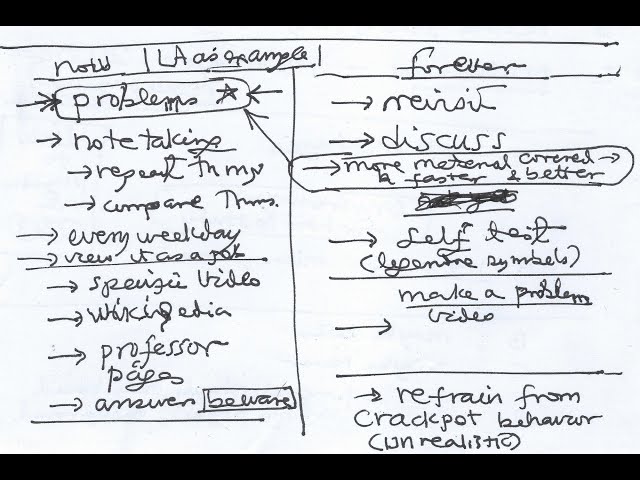 now | LA as example |
→ problems ☆ ←
→ note taking
→ repeat Thms
→ compare Thms.
→ every weekday
→ view it as a job
→ specific video
→ wikipedia
→ professor
pages
→ answers beware
forever
→ revisit
→ discuss
→ more material covered →
faster & better
→ self test
(legendre symbols)
make a problem
video
→
→ refrain from
crackpot behavior
(unrealistic)